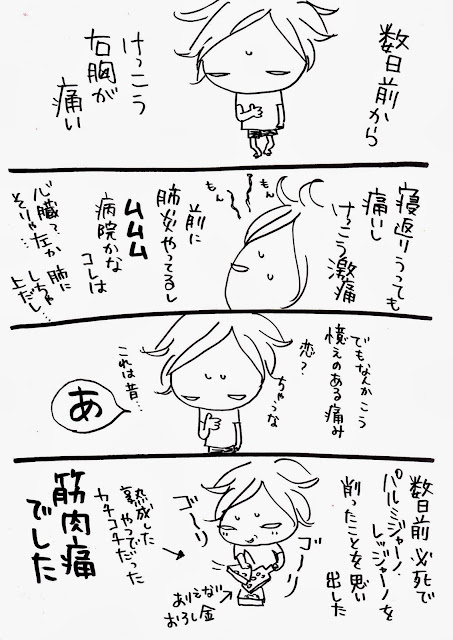 数日前から
けっこう
右胸が
痛い
寝返りうっても
痛いし
けっこう激痛
もん
もん
前に
肺炎やってるし
ムムム
病院かな
コレは
心臓？
そりゃ…左か
肺に
しちゃ
上だし…
でもなんかこう
憶えのある痛み
恋？
ちゃうな
これは昔…
あ
数日前 必死で
パルミジャーノ・
レッジャーノを
削ったことを思い
出した
ゴーリ
ゴーリ
ありえない
おろし金
熟成した
やつで
カチコチだった
筋肉痛
でした